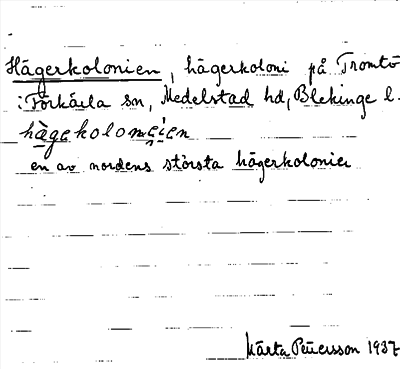 Hägerkolonien, hägerkoloni på Tromtö
i Förkärla sn, Medelstad hd, Blekinge l.
en av nordens största hägerkolonier
Märta Petersson 1937